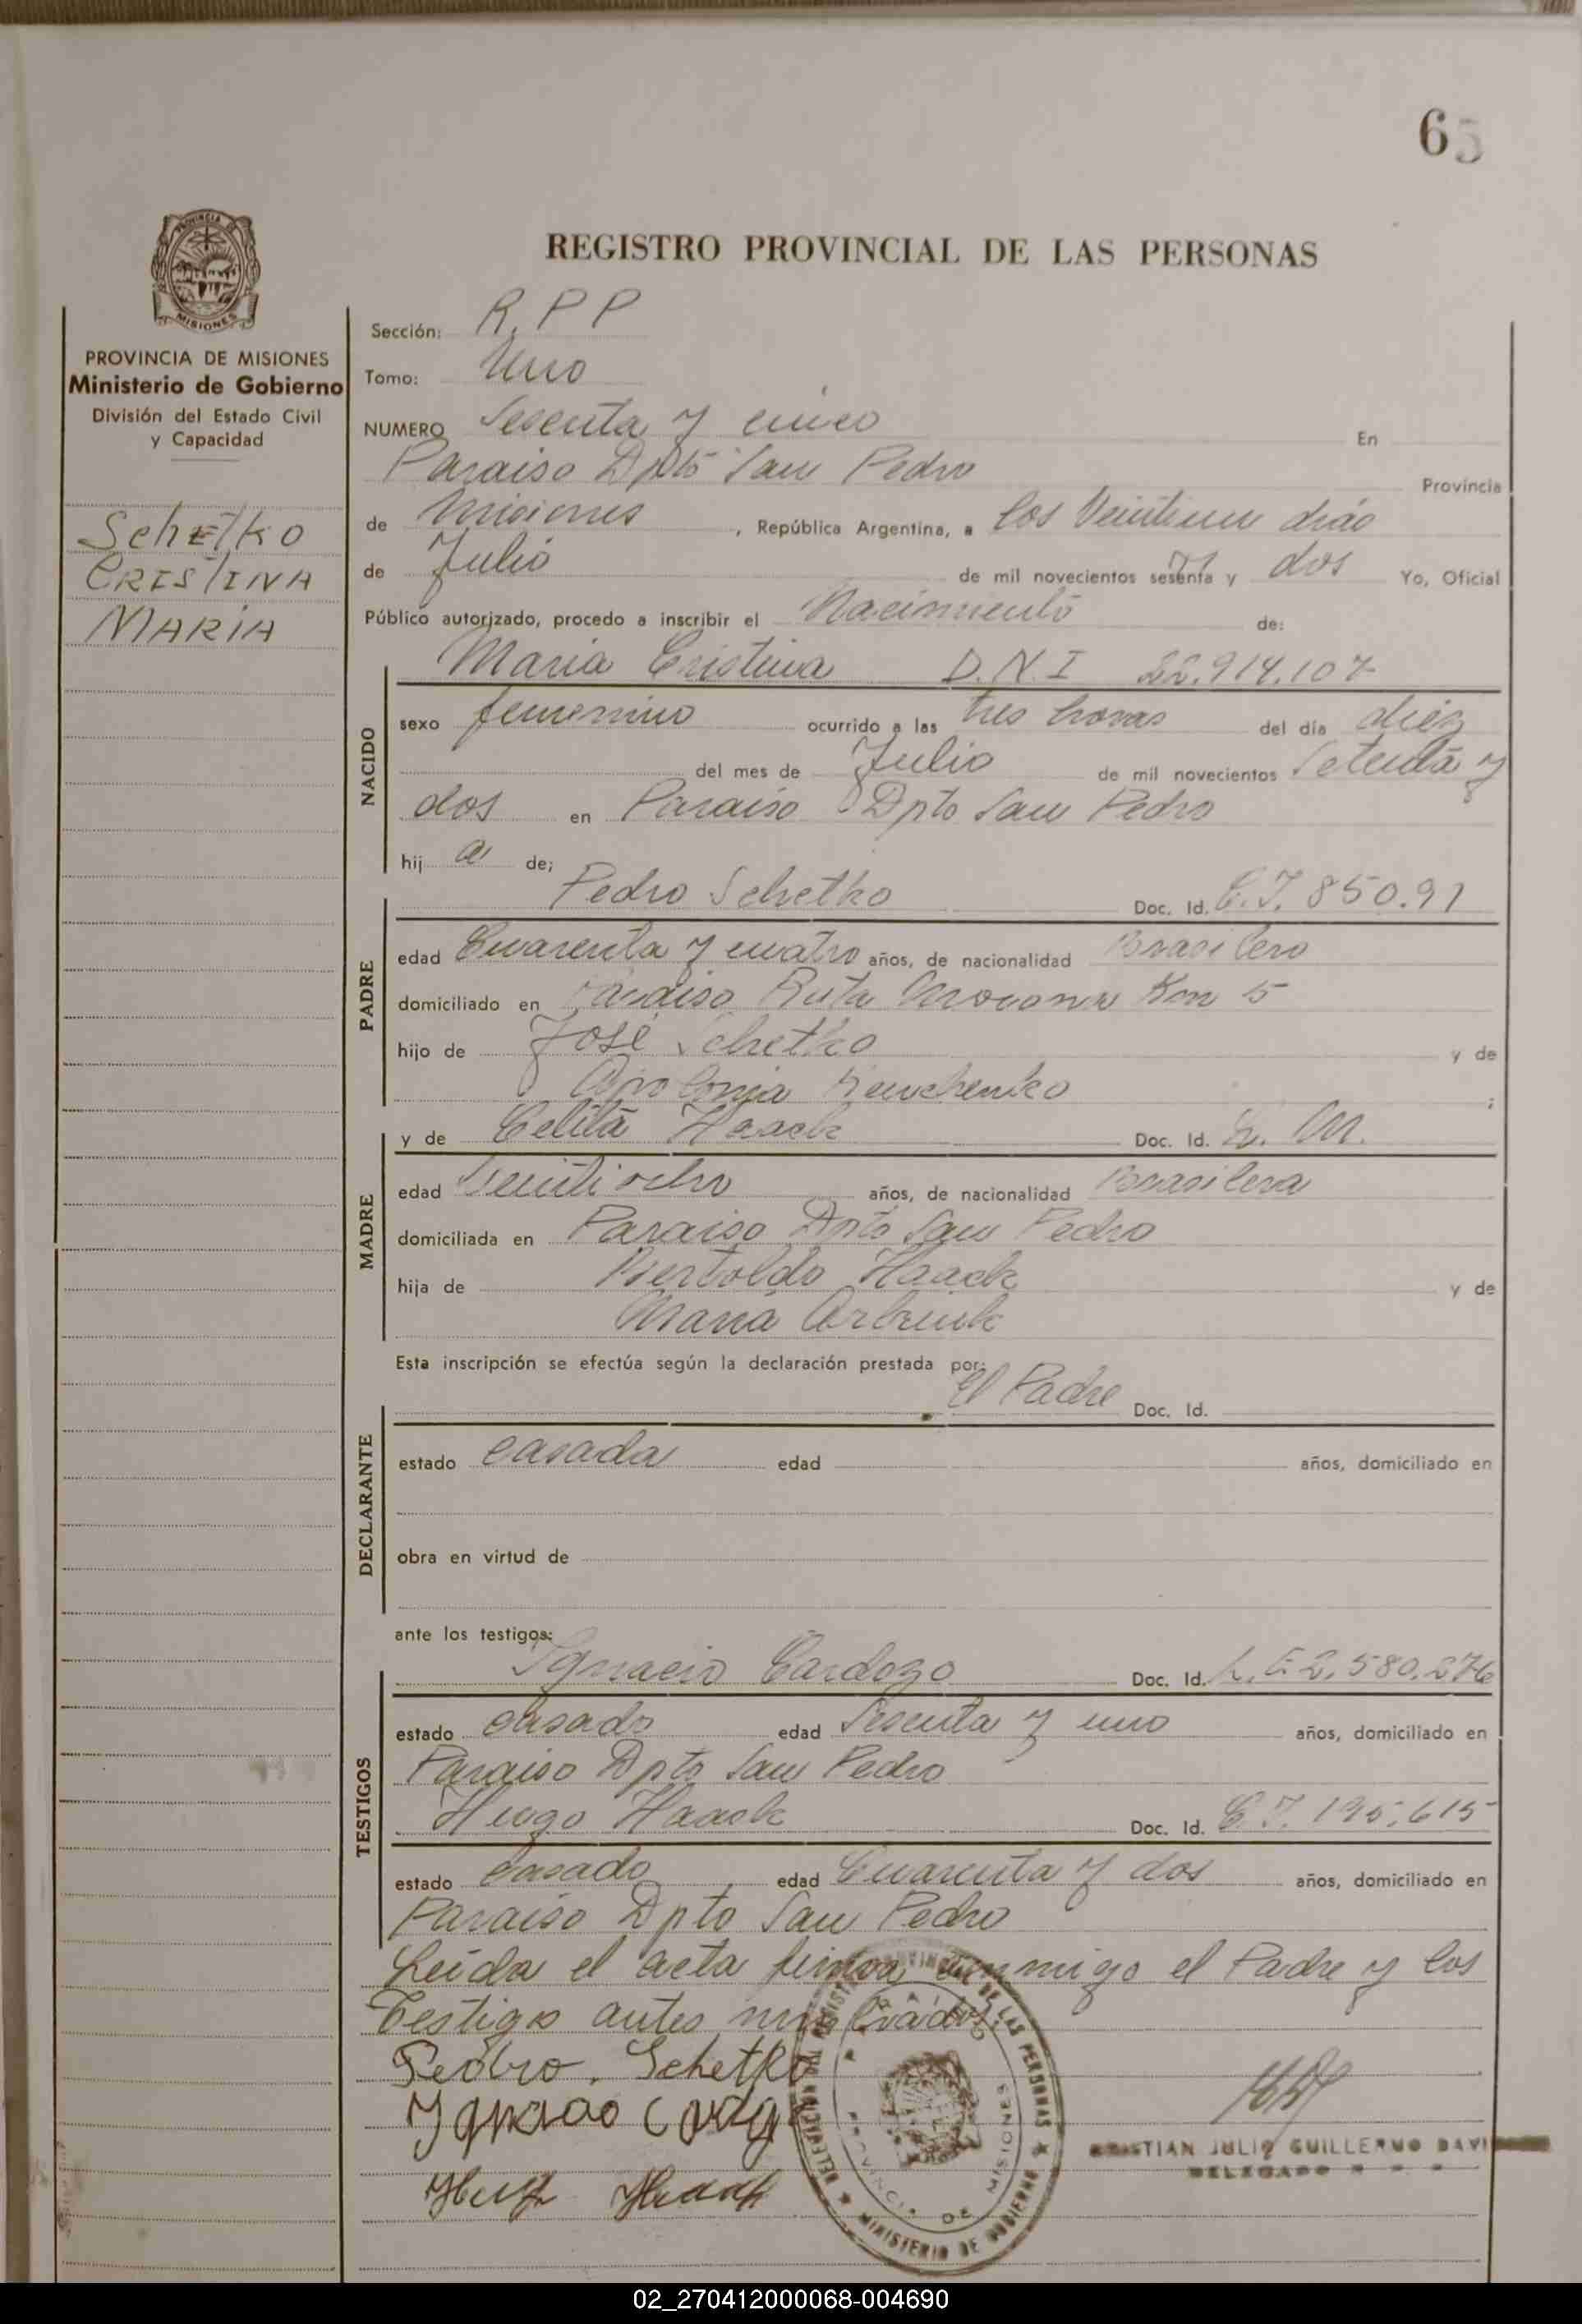 65
PROVINCIA
MISIONES
PROVINCIA DE MISIONES
Ministerio de Gobierno
División del Estado Civil
y Capacidad
Schetko
CRISTINA
MARIA
REGISTRO PROVINCIAL DE LAS PERSONAS
Sección: R.P P
Tomo: Uno
NUMERO Sesenta y cinco En
Paraiso Dpto San Pedro Provincia
de Misiones, República Argentina, a los Veintiun días
de Julio de mil novecientos sesenta y dos Yo, Oficial
Público autorizado, procedo a inscribir el Nacimiento de:
Maria Cristina D.N.I 22.914.107
NACIDO
sexo femenino ocurrido a las tres horas del día diez
del mes de Julio de mil novecientos Setenta y
dos en Paraiso Dpto San Pedro
hij a de;
Pedro Schetko Doc. Id. C.I. 850.91
PADRE
edad Cuarenta y cuatro años, de nacionalidad Brasilero
domiciliado en Paraiso Ruta Km 15
hijo de José Schetko y de
Apolonia ;
y de Celita Haack Doc. Id.
MADRE
edad Veintiocho años, de nacionalidad Brasilera
domiciliada en Paraiso Dpto San Pedro
hija de Bertoldo Haack y de
Maria
Esta inscripción se efectúa según la declaración prestada por:
El Padre Doc. Id.
DECLARANTE
estado casada edad años, domiciliado en
obra en virtud de
ante los testigos:
Ignacio Cardozo Doc. Id. L.E 2.580.276
TESTIGOS
estado casado edad Sesenta y uno años, domiciliado en
Paraiso Dpto San Pedro
Hugo Haack Doc. Id. C.I. 195.615
estado Casado edad Cuarenta y dos años, domiciliado en
Paraiso Dpto San Pedro
Leida el acta firman conmigo el Padre y los
Testigos antes
Pedro. Schetko
Hugo Haack
PROVINCIAL DE LAS PERSONAS ★ MINISTERIO DE GOBIERNO ★
PROVINCIA DE MISIONES
CRISTIAN JULIO GUILLERMO DAVI
DELEGADO
02_270412000068-004690